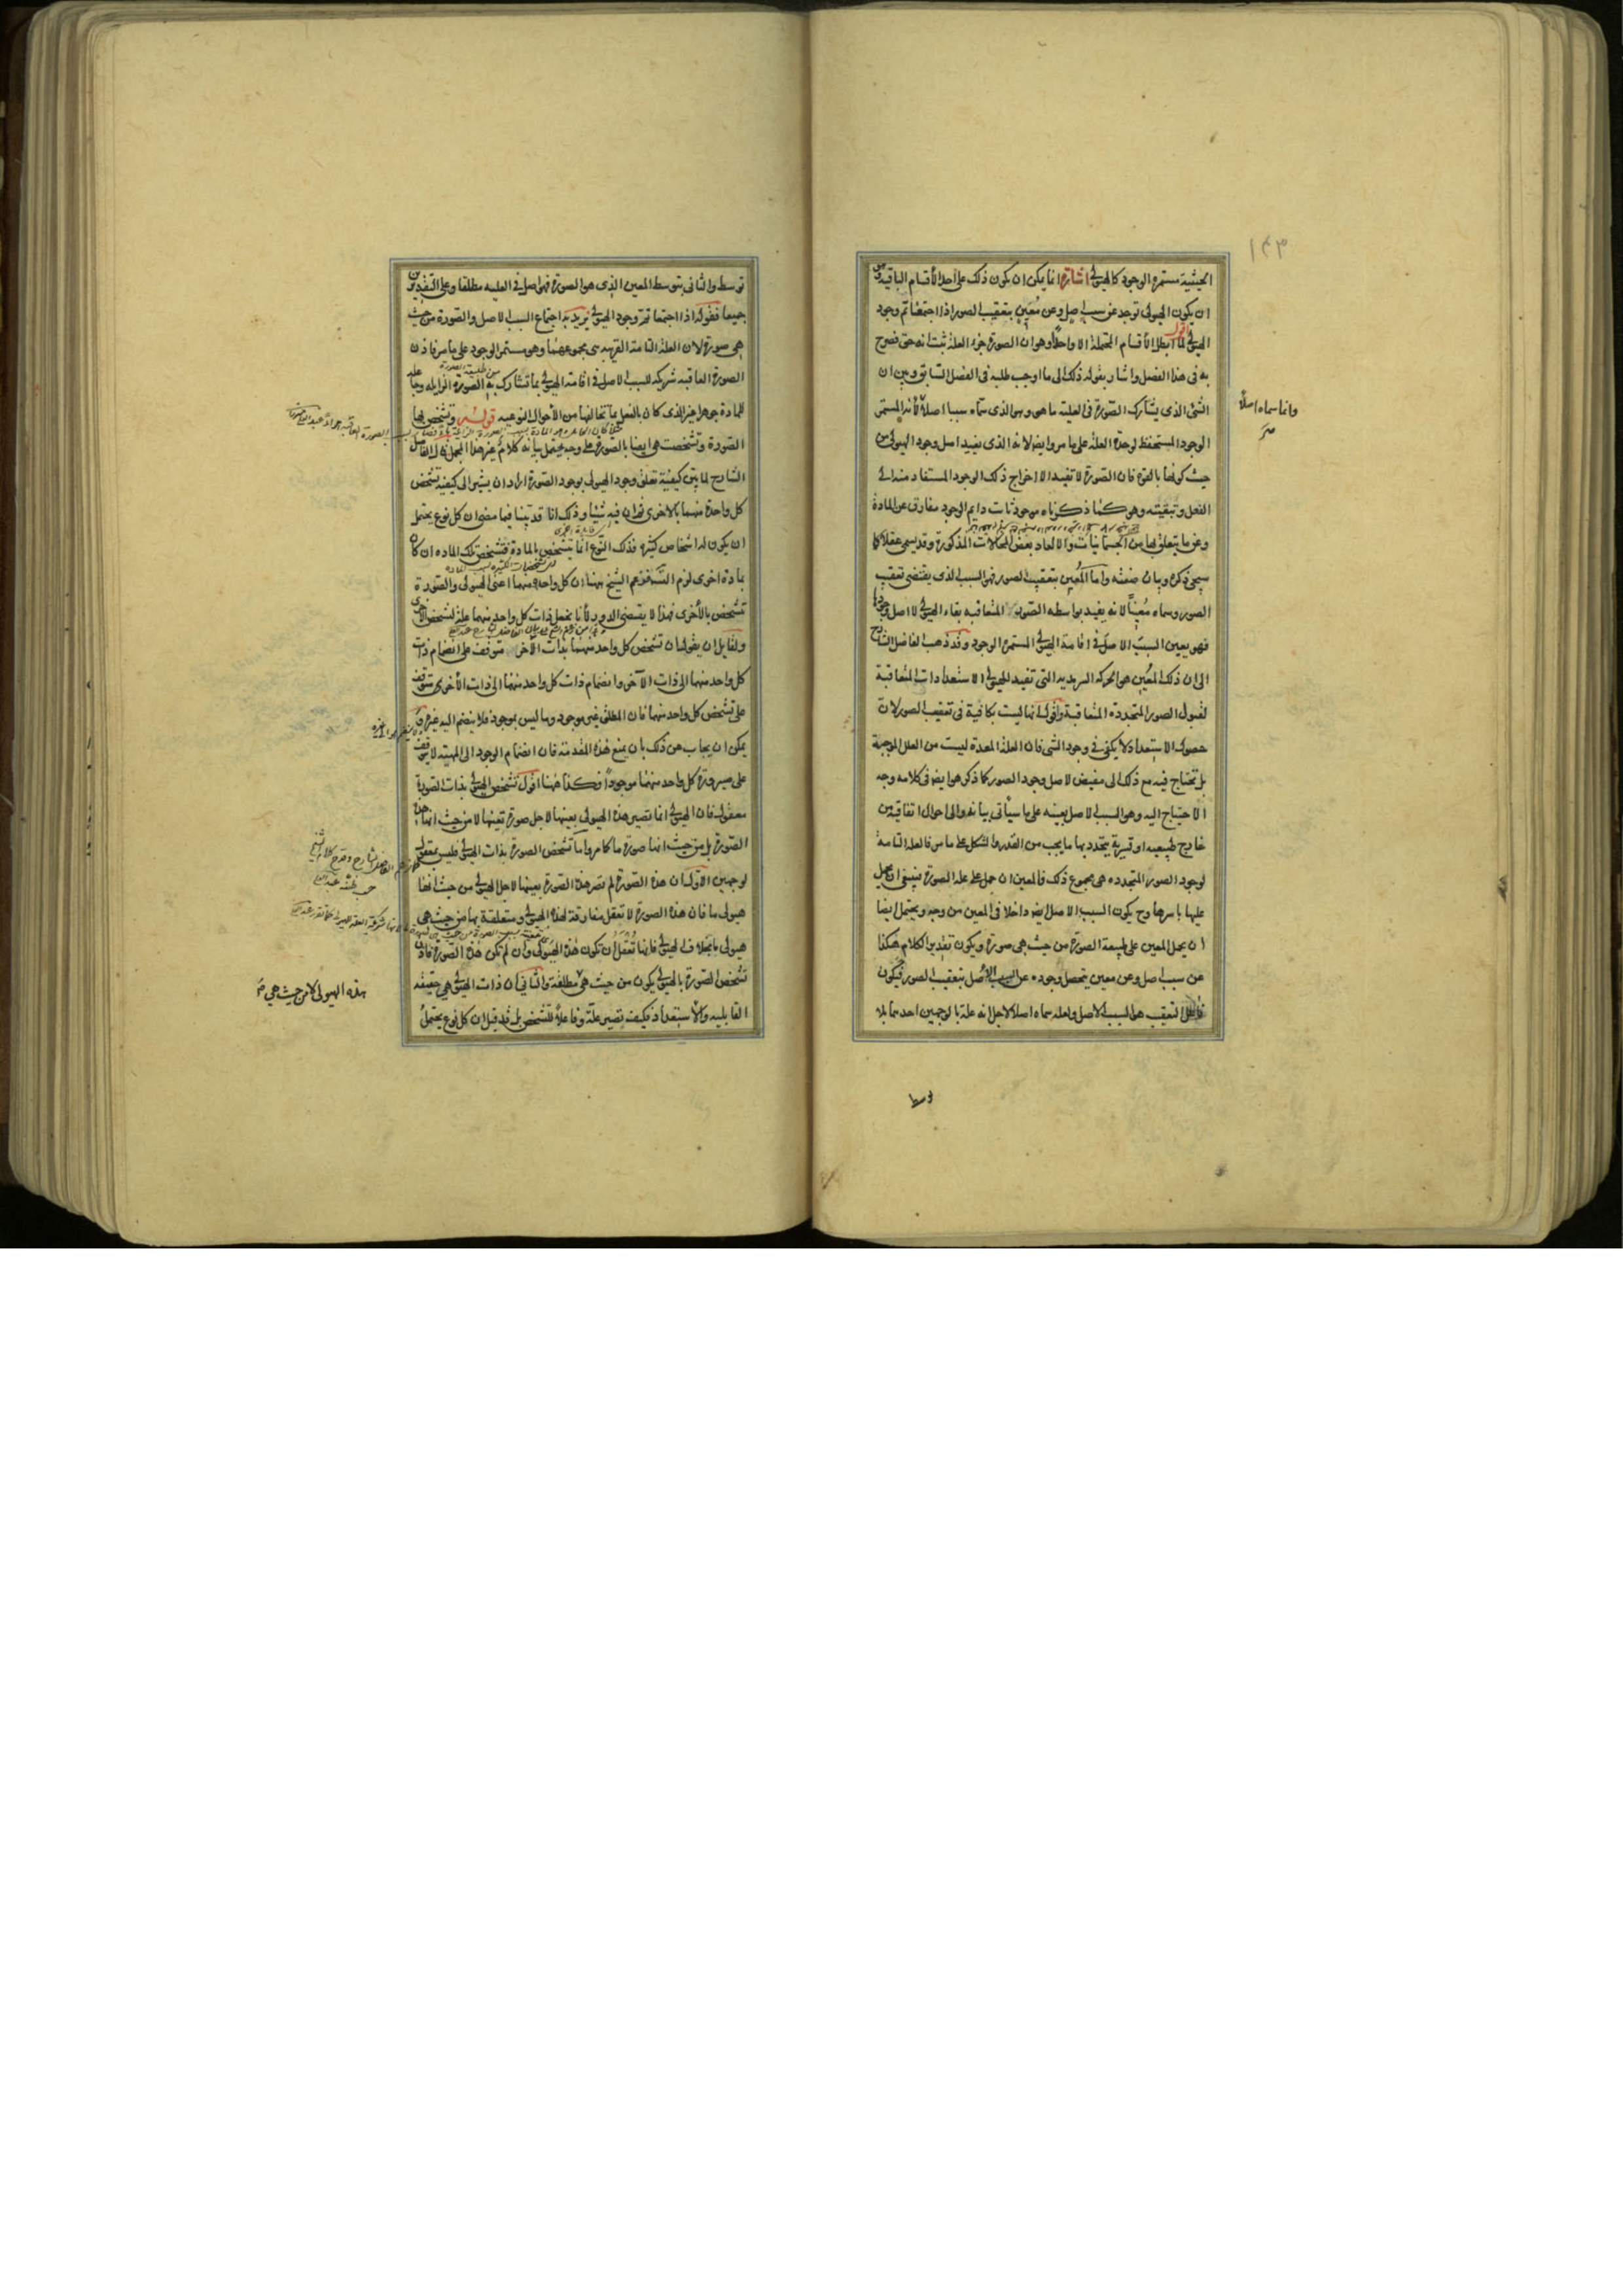 ١٤٣
الحيثية مستمرة الوجود كالهيولى اشارة انما يمكن ان يكون ذلك على احد الأقسام الباقية وهى
ان يكون الهيولى توجد عن سبب اصل وعن معين بتعقيب الصور اذا اجتمعا تم وجود
الهيولى اقول لما ابطل الأقسام المحتملة الا واحدا وهو ان الصورة جزء العلة ثبت انه حق فصرح
به فى هذا الفصل واشار بقوله ذلك الى ما اوجب طلبه فى الفصل السابق وبين ان
الشئ الذى يشارك الصورة فى العلية ما هو وهو الذى سماه سببا اصلا لأنه المستمر
وانما سماه اصلا
الوجود المستحفظ لوحدة العلة على ما مر وايضا لانه الذى يفيد اصل وجود الهيولى من
حيث كونها بالقوة فان الصورة لا تفيد الا اخراج ذلك الوجود المستفاد منه الى
الفعل وتبقيته وهو كما ذكرناه موجود ثابت دايم الوجود مفارق عن المادة
وعن ما يتعلق بها من الجسمانيات والا لعاد بعض المحالات المذكورة وقد يسمى عقلا كما
سيجئ ذكره وبيان صفته واما المعين بتعقيب الصور فهو السبب الذى يقتضى تعقيب
الصور وسماه معينا لانه يفيد بواسطة الصور المتعاقبة بقاء الهيولى لا اصل وجودها
فهو يعين السبب الاصل فى اقامة الهيولى المستمرة الوجود وقد ذهب الفاضل الشارح
الى ان ذلك المعين هو الحركة السرمدية التى تفيد الهيولى الاستعدادات المتعاقبة
لقبول الصور المتجددة المتعاقبة واقول انها ليست بكافية فى تعقيب الصور لان
حصول الاستعداد لا يكفى فى وجود الشئ فان العلة المعدة ليست من العلل الموجبة
بل تحتاج فيه مع ذلك الى مفيض لاصل وجود الصور كما ذكر هو ايضا فى كلامه وجه
الاحتياج اليه وهو السبب الاصل بعينه على ما سيأتى بيانه والى احوال اتفاقية من
خارج طبيعية او قسرية يتحدد بها ما يجب من القدر والشكل على ما مر فالعلة التامة
لوجود الصور المتجددة هى مجموع ذلك فالمعين ان حمل على علة الصورة فينبغى ان يحمل
عليها باسرها وح يكون السبب الاصل ايضا داخلا فى المعين من وجه ويحتمل ايضا
ان يحمل المعين على طبيعة الصورة من حيث هى صورة ويكون تقدير الكلام هكذا
عن سبب اصل وعن معين يتحصل وجوده عن السبب الاصل بتعقيب الصور فيكون
فاعل التعقيب هو السبب الاصل ولعله سماه اصلا لاجل انه علة بالوجهين احدهما بلا
توسط
توسط والثانى بتوسط المعين الذى هو الصورة فهو اصل فى العلية مطلقا وعلى التقديرين
جميعا فقوله اذا اجتمعا تم وجود الهيولى يريد به اجتماع السبب الاصل والصورة من حيث
هى صورة لان العلة التامة القريبة هى مجموعهما وهو مستمر الوجود على ما مر فاذن
الصورة العاقبة شريكة للسبب الاصل فى اقامة الهيولى بما تشارك به الصورة الزايلة وجاعلة
للمادة جوهرا غير الذى كان بالفعل بما تخالفها من الأحوال النوعية قوله وتشخص بها
الصورة وتشخصت هى ايضا بالصورة على وجه يحتمل بيانه كلام غير هذا المجمل قال الفاضل
الشارح لما بين كيفية تعلق وجود الهيولى بوجود الصورة اراد ان يشير الى كيفية تشخص
كل واحدة منهما بالاخرى فان فيه شيئا وذلك انا قد بينا فيما مضى ان كل نوع يحتمل
ان يكون له اشخاص كثيرة فذلك النوع انما يتشخص بالمادة فتشخص تلك المادة ان كان
بمادة اخرى لزم التس فزعم الشيخ ههنا ان كل واحدة منهما اعنى الهيولى والصورة
تتشخص بالأخرى فهذا لا يقتضى الدور لأنا نجعل ذات كل واحد منهما علة لتشخص الأخرى
ولقايل ان يقول ان تشخص كل واحد منهما بذات الآخر متوقف على انضمام ذات
كل واحد منهما الى ذات الآخر وانضمام ذات كل واحد منهما الى ذات الأخرى متوقف
على تشخص كل واحد منهما فان المطلق غير موجود وما ليس بموجود فلا ينضم اليه غيره
يمكن ان يجاب عن ذلك بان يمنع هذه المقدمة فان انضمام الوجود الى المهية لا يتوقف
على صيرورة كل واحد منهما موجودا فكذا ههنا اقول تشخص الهيولى بذات الصورة
معقول فان الهيولى انما تصير هذه الهيولى بعينها لاجل صورة تعينها لا من حيث انها هذه
الصورة بل من حيث انها صورة ما كما مر واما تشخص الصورة بذات الهيولى فليس بمعقول
لوجهين الاول ان هذه الصورة لم تصر هذه الصورة بعينها لاجل الهيولى من حيث انها
هيولى ما فان هذه الصورة لا تعقل مفارقة لهذه الهيولى ومتعلقة بها من حيث هى
هيولى ما بخلاف الهيولى فانها تعقل ان تكون هذه الهيولى وان لم تكن هذه الصورة فاذن
تشخص الصورة بالهيولى يكون من حيث هى مطلقة والثانى ان ذات الهيولى هى حقيقة
هذه الهيولى لا من حيث هى
القابلية والاستعداد فكيف تصير علة وفاعلا للتشخص بل قد قيل ان كل نوع يحتمل